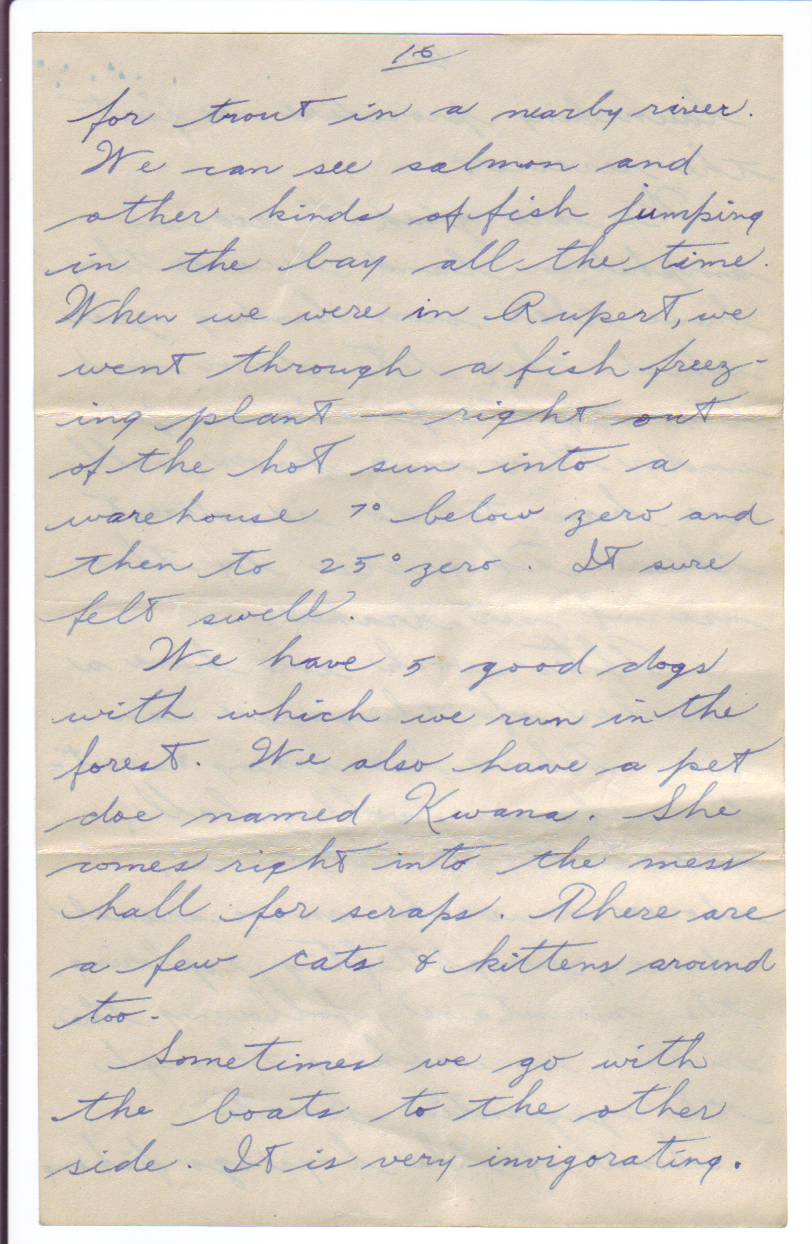 16
for trout in a nearby river.
We can see salmon and
other kinds of fish jumping
in the bay all the time.
When we were in Rupert, we
went through a fish freez-
ing plant — right out
of the hot sun into a
warehouse 7° below zero and
then to 25° zero. It sure
felt swell.
We have 5 good dogs
with which we run in the
forest. We also have a pet
doe named Kwana. She
comes right into the mess
hall for scraps. There are
a few cats & kittens around
too.
Sometimes we go with
the boats to the other
side. It is very invigorating.